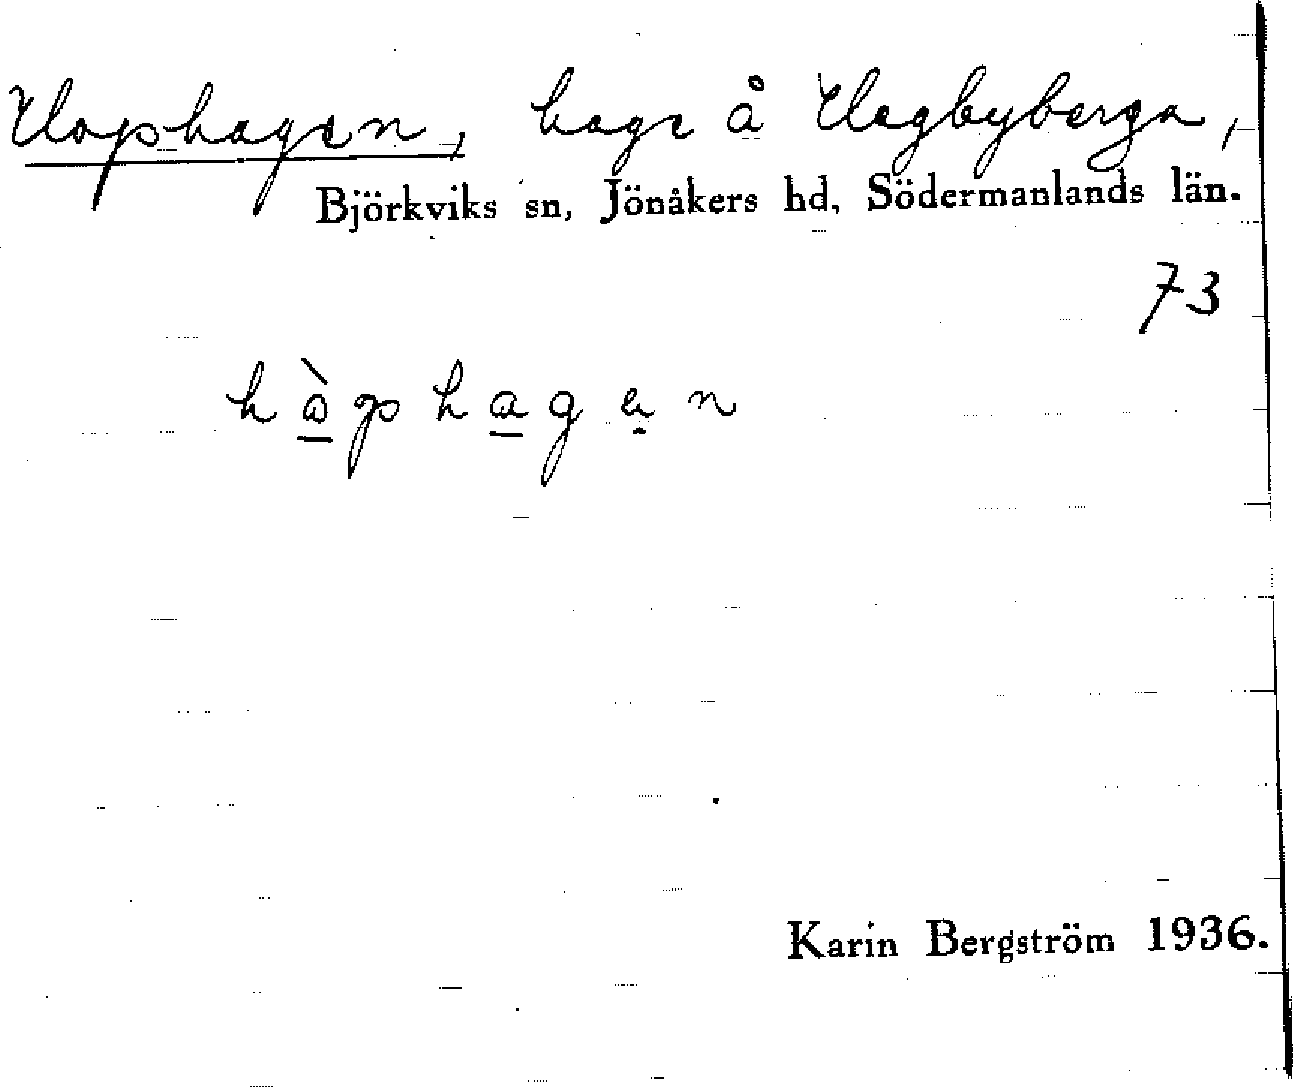 Hophagen, hage å Hagbyberga,
Björkviks sn, Jönåkers hd, Södermanlands län.
73
hò̲pha̲gẹn
Karin Bergström 1936.